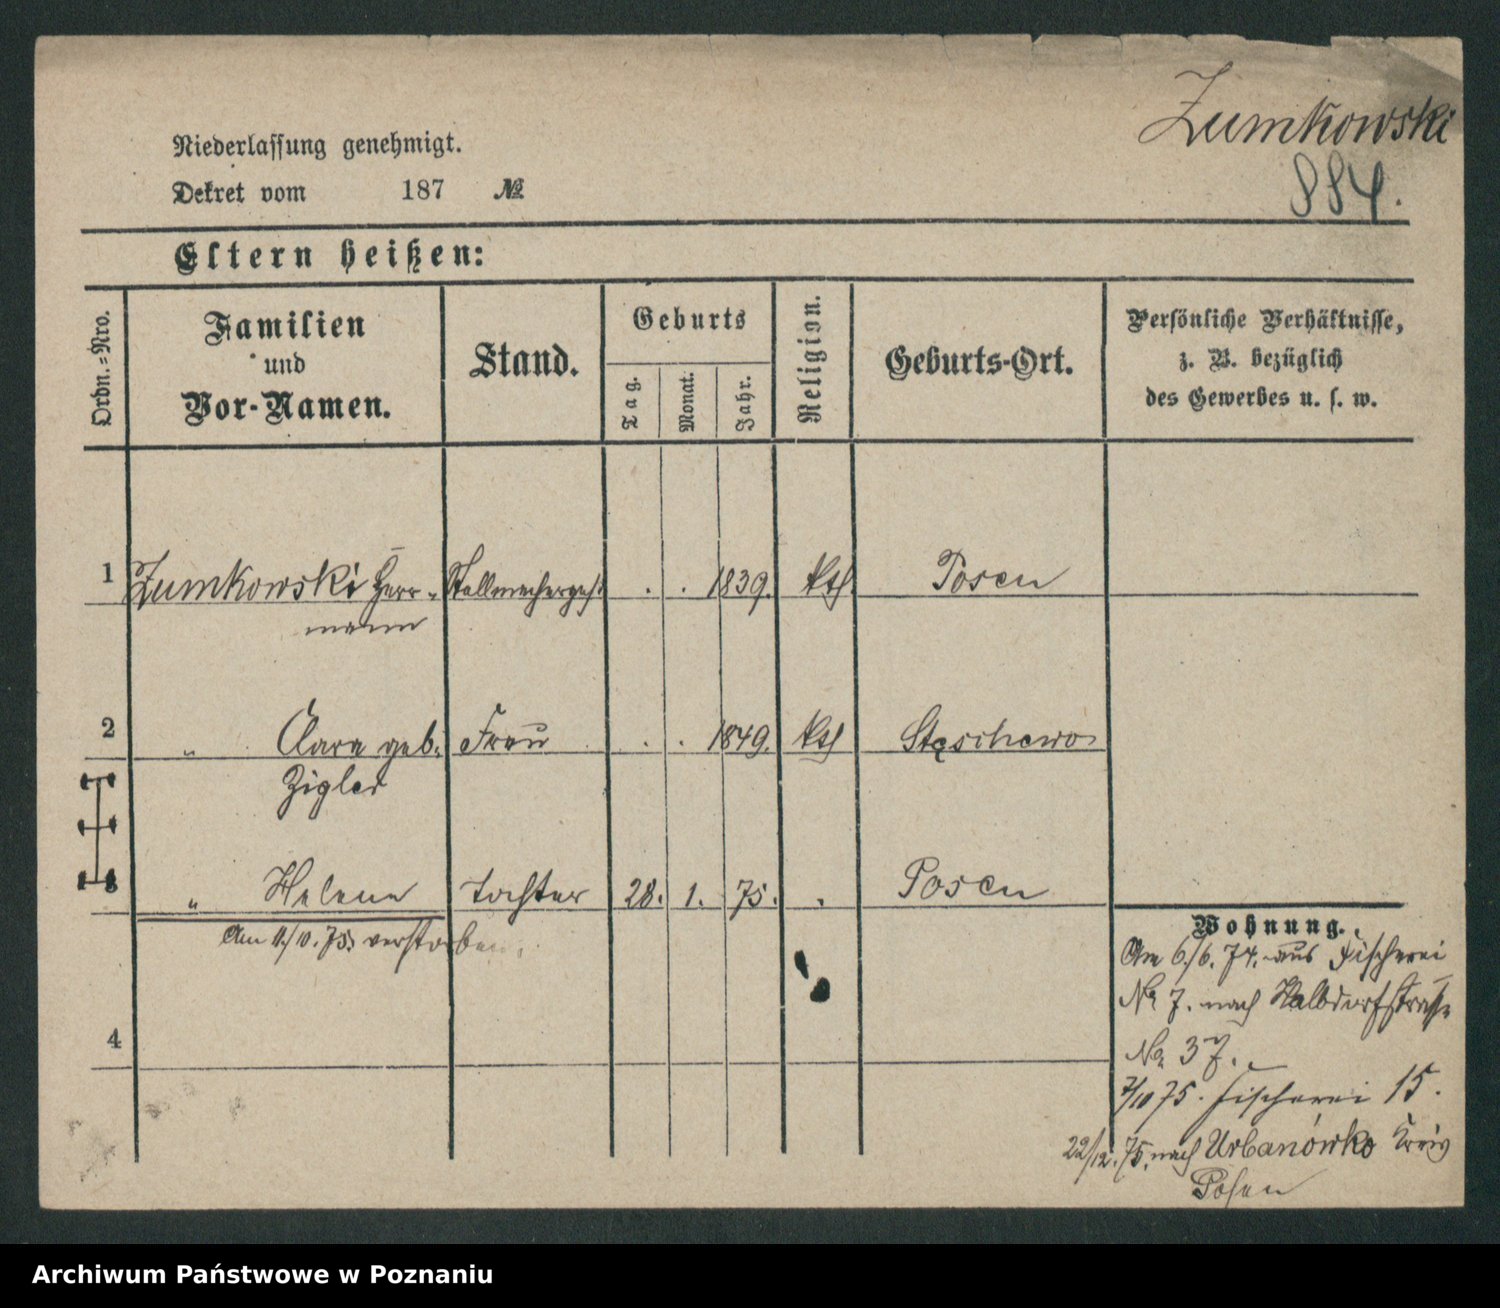 Zumkowski
884.
Niederlassung genehmigt.
Dekret vom 187 №
Eltern heißen:
Ordn.-Nro.
Familien
und
Vor-Namen.
Stand.
Geburts
Tag.
Monat.
Jahr.
Religion.
Geburts-Ort.
Persönliche Verhältnisse,
z. B. bezüglich
des Gewerbes u. s. w.
1 Zumkowski Herr- Stellmacherges. . . 1839. kth. Posen
mann
2 " Clara geb. Frau . . 1849. kth Stęschewo
Zigler
3 " Helene Tochter 28. 1. 75. . Posen
Am 11/10. 75. verstorben.
4
Wohnung.
Am 6./6. 74. aus Fischerei
No 7. nach Halbdorfstrasse
No 37.
7/10 75. Fischerei 15.
22/12. 75. nach Urbanówko Kreis
Posen
Archiwum Państwowe w Poznaniu